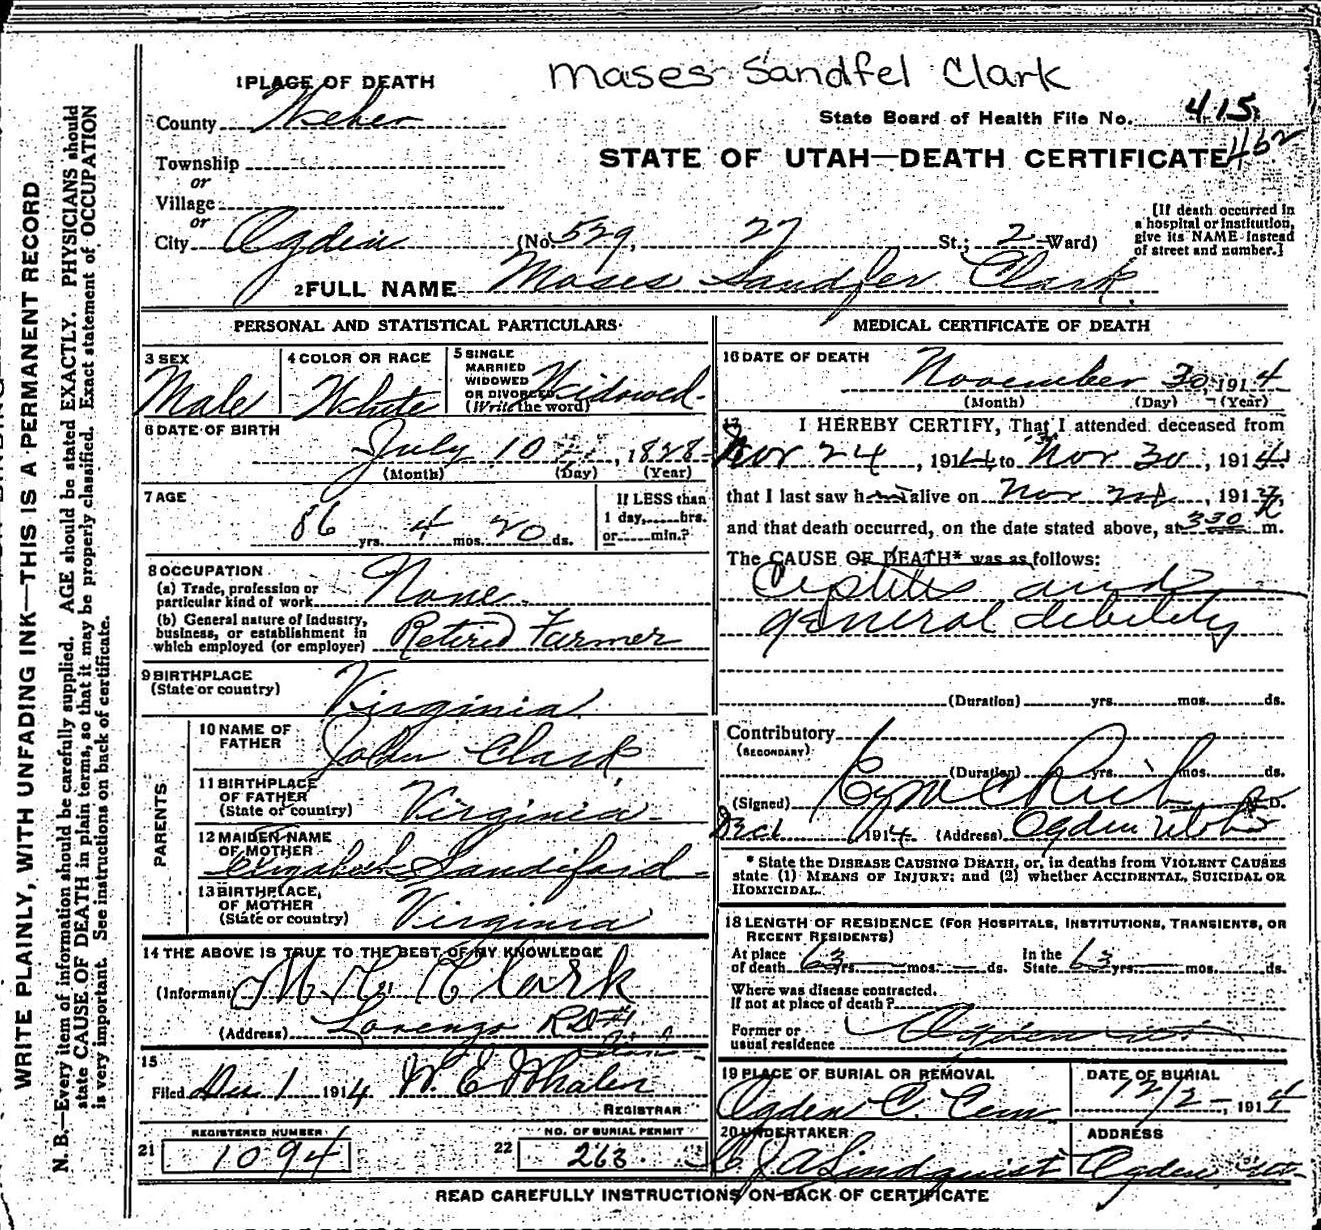 Moses Sandfel Clark
1 PLACE OF DEATH
County Weber
State Board of Health File No. 415
462
STATE OF UTAH—DEATH CERTIFICATE
Township
or
Village
or
City Ogden (No. 529, 27 St.; 2 Ward)
[If death occurred in
a hospital or institution,
give its NAME instead
of street and number.]
2 FULL NAME Moses Sandfer Clark
PERSONAL AND STATISTICAL PARTICULARS
3 SEX
Male
4 COLOR OR RACE
White
5 SINGLE
MARRIED
WIDOWED
OR DIVORCED
(Write the word)
Widowed
6 DATE OF BIRTH
July 10, 1828
(Month) (Day) (Year)
7 AGE
86 yrs. 4 mos. 20 ds.
If LESS than
1 day, hrs.
or min.?
8 OCCUPATION
(a) Trade, profession or
particular kind of work None
(b) General nature of Industry,
business, or establishment in
which employed (or employer) Retired Farmer
9 BIRTHPLACE
(State or country) Virginia
PARENTS
10 NAME OF
FATHER John Clark
11 BIRTHPLACE
OF FATHER
(State or country) Virginia
12 MAIDEN NAME
OF MOTHER
Elizabeth Sandiford
13 BIRTHPLACE,
OF MOTHER
(State or country) Virginia
14 THE ABOVE IS TRUE TO THE BEST OF MY KNOWLEDGE
(Informant) Clark
(Address) Lorenzo RD#1
15
Filed Dec 1 1914 W. E. Whalen
REGISTRAR
REGISTERED NUMBER
21 1094
NO. OF BURIAL PERMIT
22 263
MEDICAL CERTIFICATE OF DEATH
16 DATE OF DEATH
November 30 1914
(Month) (Day) (Year)
17 I HEREBY CERTIFY, That I attended deceased from
Nov 24, 1914 to Nov 30, 1914
that I last saw h alive on Nov 28, 191
and that death occurred, on the date stated above, at 330 m.
The CAUSE OF DEATH* was as follows:
Cistitis and
general debility
(Duration) yrs. mos. ds.
Contributory
(SECONDARY)
(Duration) yrs. mos. ds.
(Signed) Rich M. D.
Dec 1 1914 (Address) Ogden Utah
* State the DISEASE CAUSING DEATH, or, in deaths from VIOLENT CAUSES
state (1) MEANS OF INJURY; and (2) whether ACCIDENTAL, SUICIDAL OR
HOMICIDAL.
18 LENGTH OF RESIDENCE (FOR HOSPITALS, INSTITUTIONS, TRANSIENTS, OR
RECENT RESIDENTS)
At place
of death 63 yrs. mos. ds. In the
State 63 yrs. mos. ds.
Where was disease contracted.
If not at place of death?
Former or
usual residence Ogden
19 PLACE OF BURIAL OR REMOVAL
Ogden C. Cem
DATE OF BURIAL
12/2, 1914
20 UNDERTAKER
J A Lindquist
ADDRESS
Ogden
READ CAREFULLY INSTRUCTIONS ON BACK OF CERTIFICATE
WRITE PLAINLY, WITH UNFADING INK—THIS IS A PERMANENT RECORD
N. B.—Every item of information should be carefully supplied. AGE should be stated EXACTLY. PHYSICIANS should
state CAUSE OF DEATH in plain terms, so that it may be properly classified. Exact statement of OCCUPATION
is very important. See instructions on back of certificate.